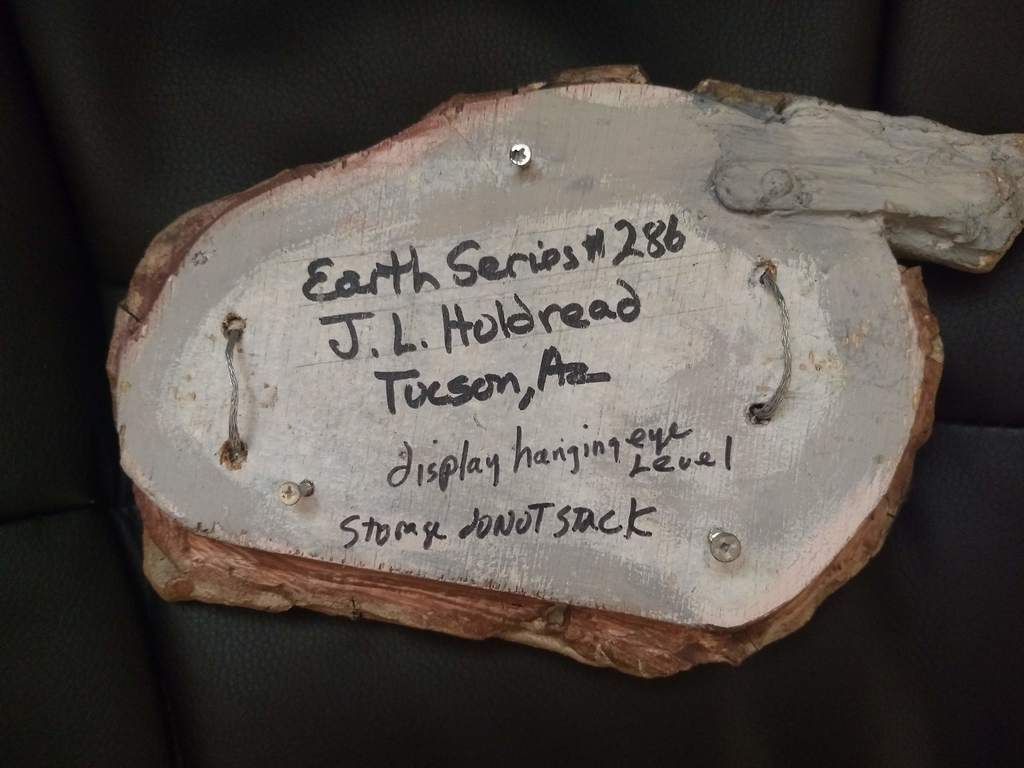 Earth Series # 286
J. L. Holdread
Tucson, Az
display hanging eye
Level
Storage DO NOT STACK